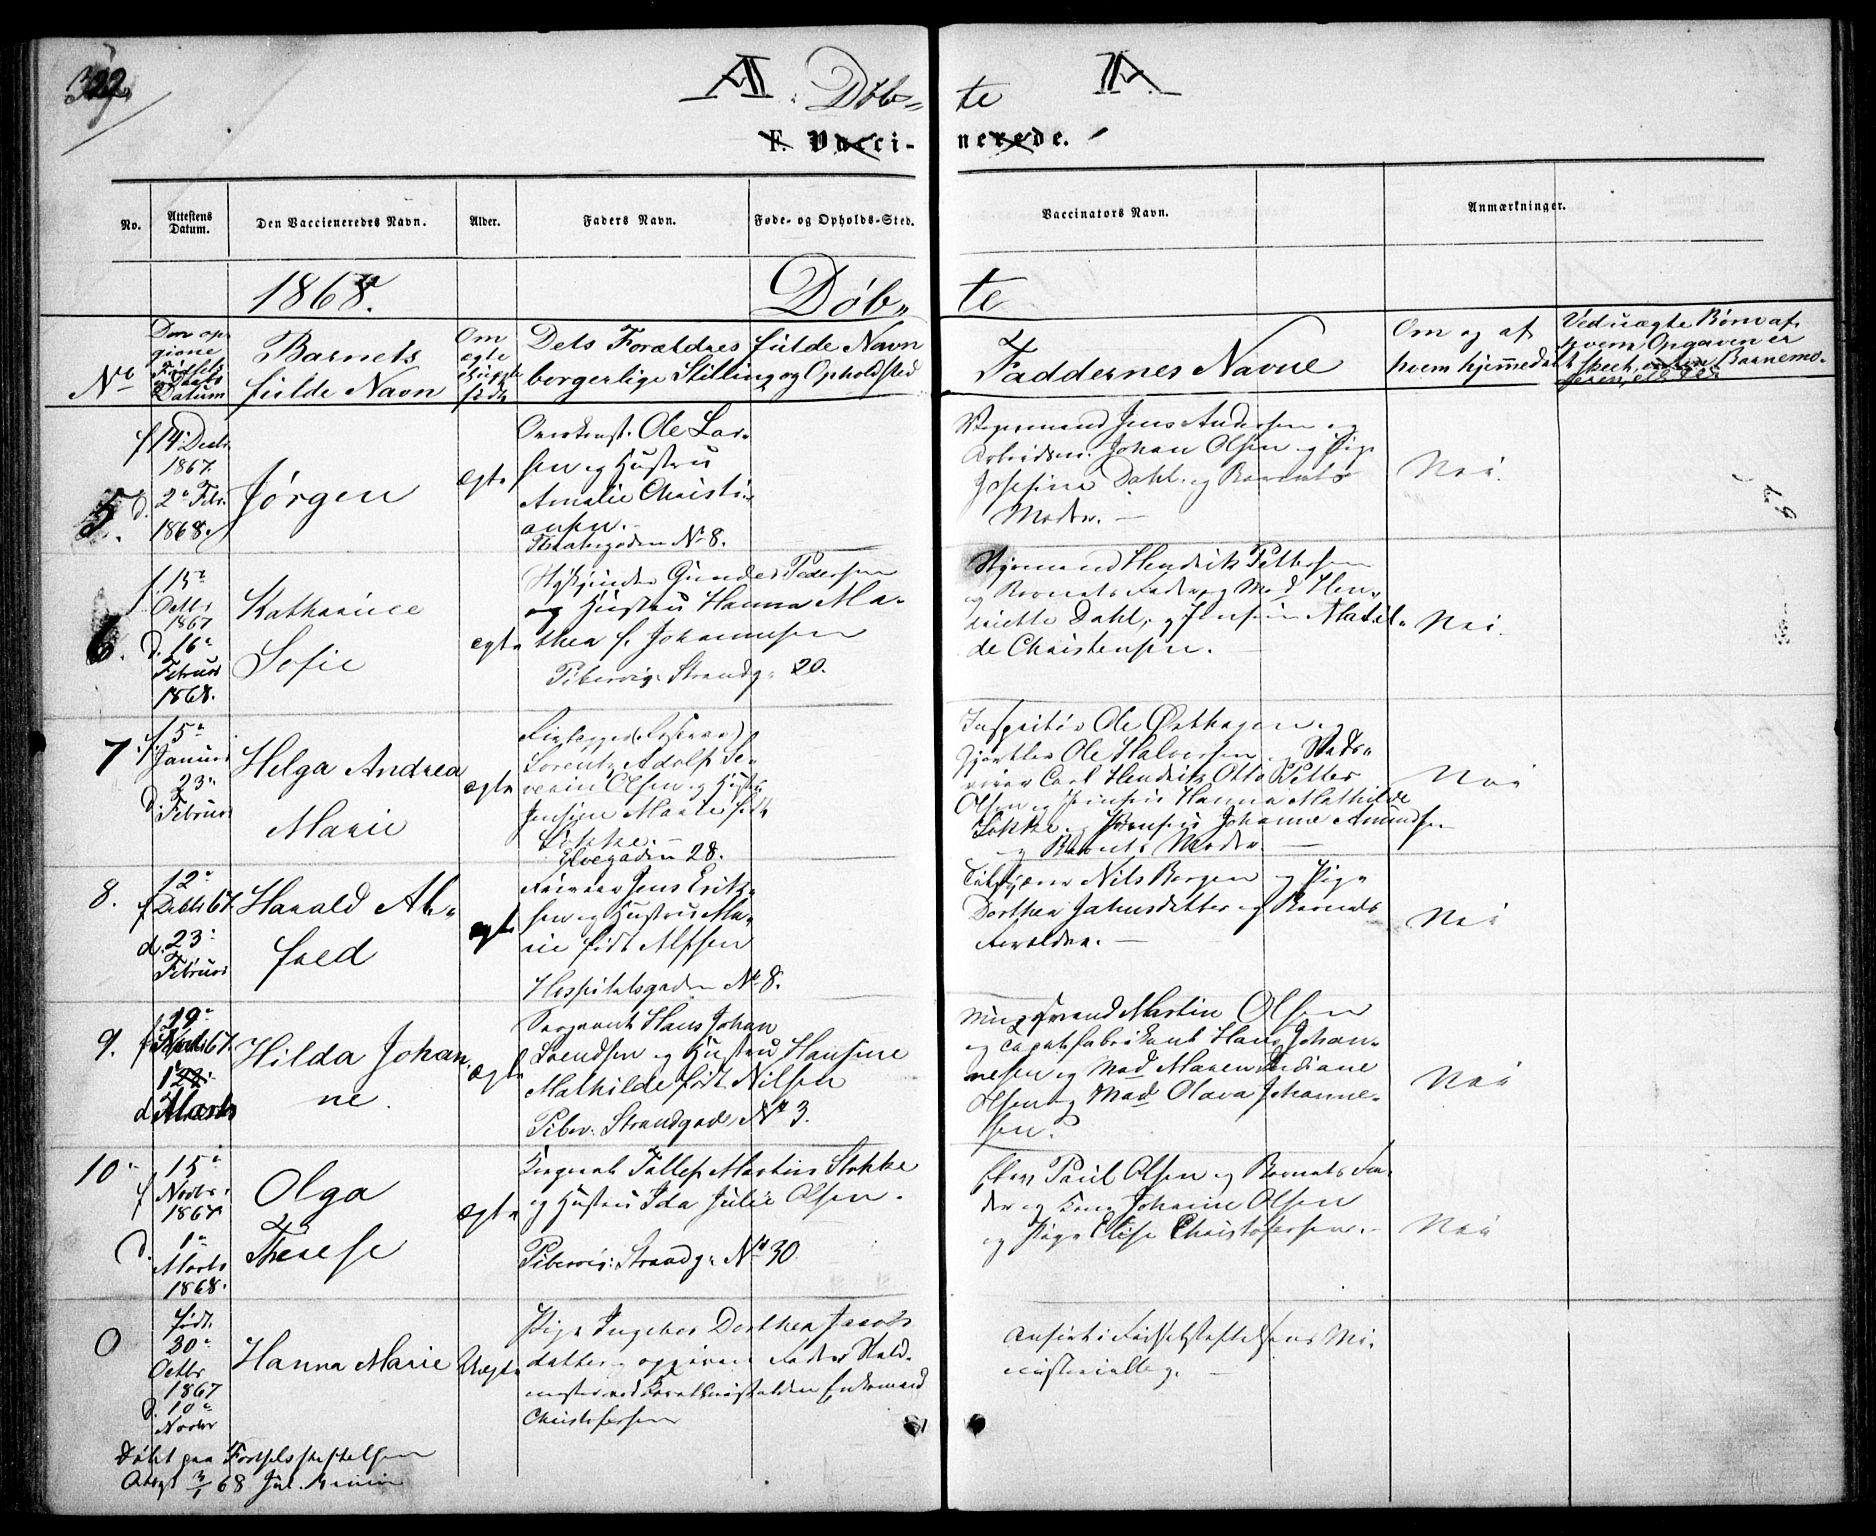 322
A. Døb= te A
F. Vacci- nerede.
No.
Attestens Datum.
Den Vaccieneredes Navn.
Alder.
Faders Navn.
Føde- og Opholds-Sted.
Vaccinators Navn.
Anmærkninger.
1868.
Døb„ te
No
Den op-
givne
Fødsels
og Daabs
Datum
Barnets
fulde Navn
Om
ægte
eller uægte
født
Dets Forældres fulde Navn
borgerlige Stilling og Opholdsted
Faddernes Navne
Om og af
hvem hjemmedøbt
Ved uægte Børn af
hvem Opgaven er
skeet, enten Barnemo-
5.
f 14 Decbr.
1867.
d. 2n Febr.
1868.
Jørgen
ægte
Ole Lar-
sen og Hustru
Amalie Christi-
ansen.
Theatergaden No 8.
Jens Andersen og
Johan Olsen og Pige
Josefine Dahl. og Barnets
Moder. —
Nei.
6.
f. 15n
Octbr
1867
d. 16n
Februar
1868.
Katharine
Sofie
ægte
Gunder Pedersen
og Hustru Hanna Ma-
thea f. Johannesen
Pibervig: Strandg: 20.
Styrmand Hendrik Pettersen
og Barnets Fader, og Mad Hen-
riette Dahl, og Jomfru Matil-
de Christensen.
Nei.
7.
f. 5n
Januar
d. 23n
Februar
Helga Andrea
Marie
ægte
Lorentz Adolf Se-
verin Olsen og Hustru
Jensine Marie født
Løkke. —
Elvegaden 28.
Inspektør Ole Østhagen og
Gjørtler Ole Halvorsen og
Carl Hendrik Otto Petter
Olsen og Jomfru Hanna Mathilde
Løkke og Jomfru Johanne Amundsen
og Barnets Moder. —
Nei
8.
f 12n
Decbr 67.
d. 23n
Februar
Harald Al-
fred
ægte
Jens Erik-
sen og Hustru Ma-
rie født Alfsen
Hospitalsgaden No 8.
Nils Bergen og Pige
Dorthea Jahnsdatter og Barnets
Forældre. —
Nei
9.
f 19n
67.
1
d Marts
Hilda Johan-
ne.
ægte
Sergeant Hans Johan
Svendsen og Hustru Hansine
Mathilde født Nilsen
Piber: Strandgade No 3.
Martin Olsen
og Tapetfabrikant Hans Johan-
nesen og Mad Maren Andiane
Olsen og Mad Olava Johanne-
sen.
Nei
10.
f 15n
Novbr.
1867
d. 1n
Marts
1868.
Olga
Therese
ægte
Tollef Martin Stokke
og Hustru Ida Julie Olsen.
Pibervig: Strandg: No 30.
Paul Olsen og Barnets Fa-
der og Kone Johanne Olsen
og Pige Elise Christofersen. —
Nei
0
født
30n
Octbr
1867
d. 10n
Novbr
Hanna Marie
Uægte
Pige Ingebor Dorthea Jacobs
datter, opgiven Fader Stald-
mester ved Endremand
Christofersen
Anført i Fødselsstiftelsens Mi-
nisterialbog. —
Døbt paa Fødselsstiftelsen
Attest 3/1 68 Jul.